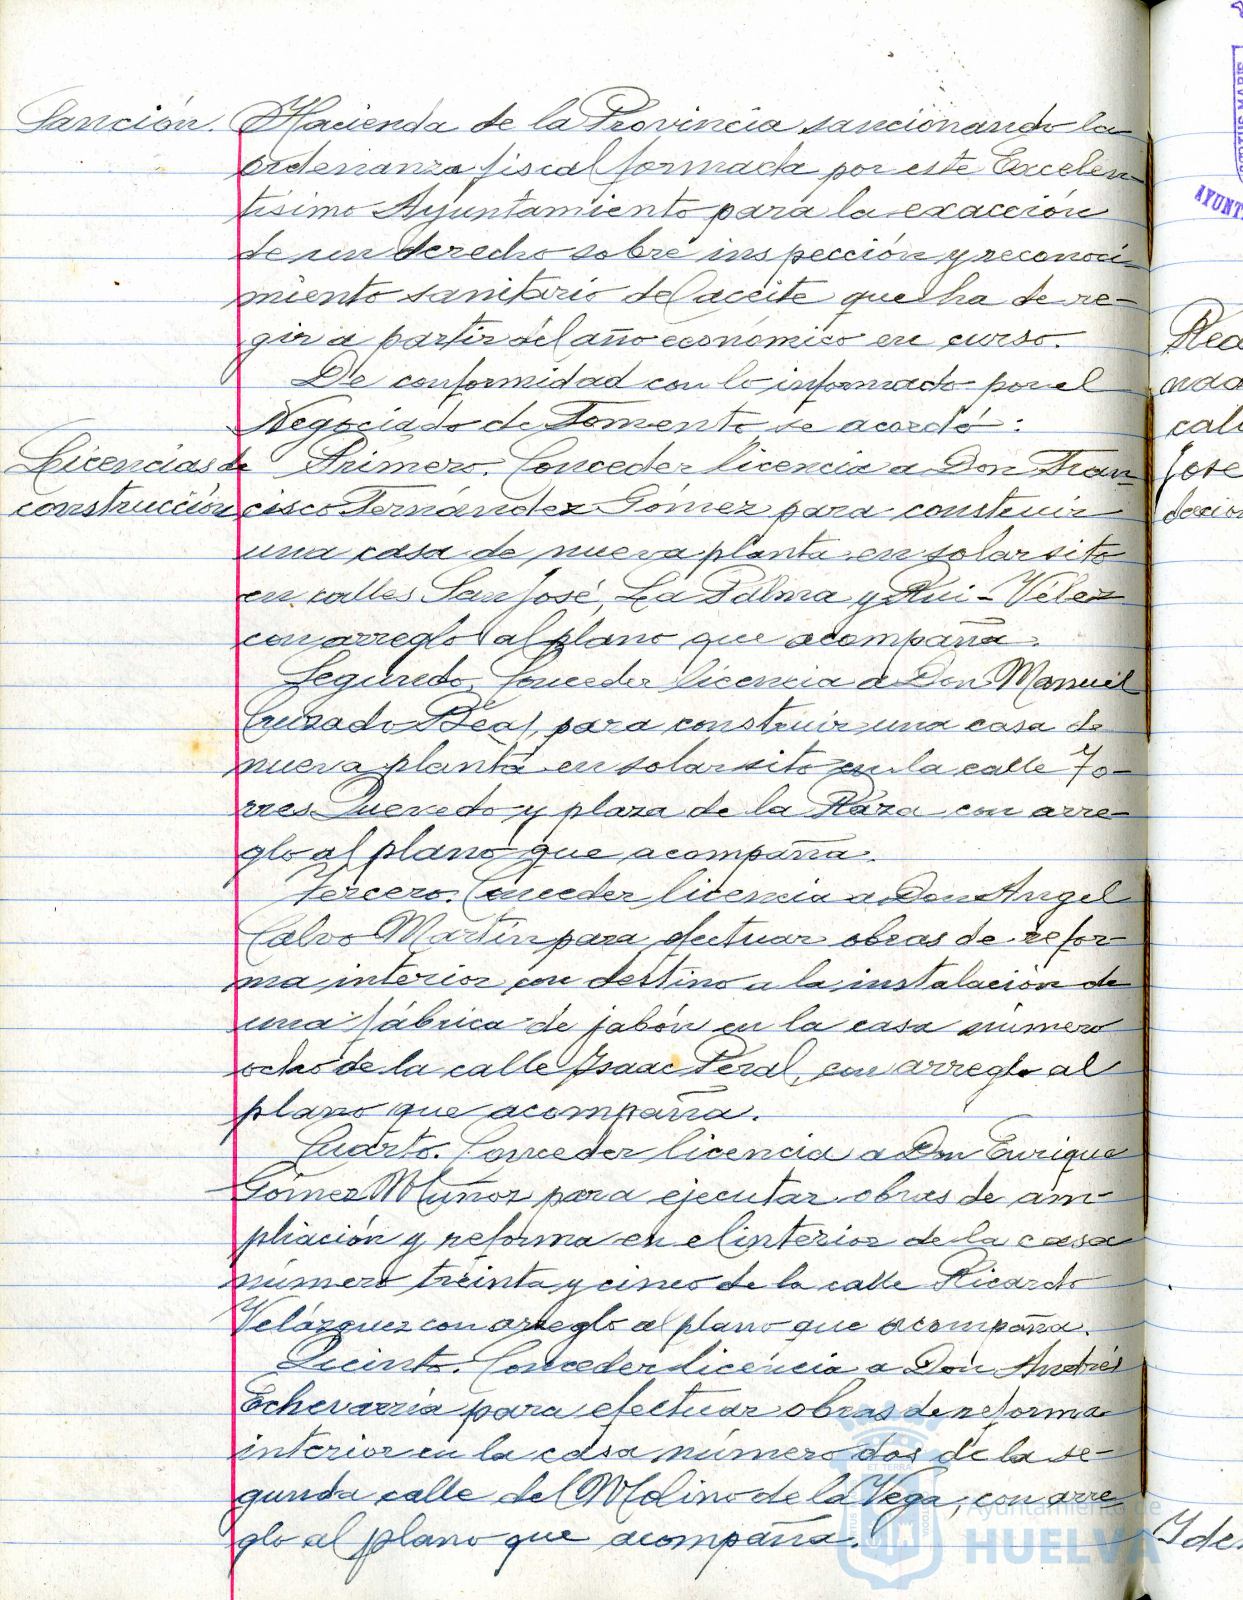 Sanción. Hacienda de la Provincia sancionando la
ordenanza fiscal formada por este Excelen-
tísimo Ayuntamiento para la exacción
de un derecho sobre inspección y reconoci-
miento sanitario del aceite que ha de re-
gir a partir del año económico en curso.
De conformidad con lo informado por el
Negociado de Fomento se acordó:
Licencias de Primero. Conceder licencia a Don Fran-
construcción cisco Fernández Gómez para construir
una casa de nueva planta en solar sito
en calles San José, La Palma y Rui-Vélez
con arreglo al plano que acompaña.
Segundo. Conceder licencia a Don Manuel
Cruzado Béa, para construir una casa de
nueva planta en solar sito en la calle To-
rres Quevedo y plaza de la Raza con arre-
glo al plano que acompaña.
Tercero. Conceder licencia a Don Angel
Calvo Martín para efectuar obras de refor-
ma interior con destino a la instalación de
una fábrica de jabón en la casa número
ocho de la calle Isaac Peral, con arreglo al
plano que acompaña.
Cuarto. Conceder licencia a Don Enrique
Gómez Muñoz para ejecutar obras de am-
pliación y reforma en el interior de la casa
número treinta y cinco de la calle Ricardo
Velázquez con arreglo al plano que acompaña.
Quinto. Conceder licencia a Don Andrés
Echevarría para efectuar obras de reforma
interior en la casa número dos de la se-
gunda calle del Molino de la Vega, con arre-
glo al plano que acompaña.
Ayuntamiento de
HUELVA